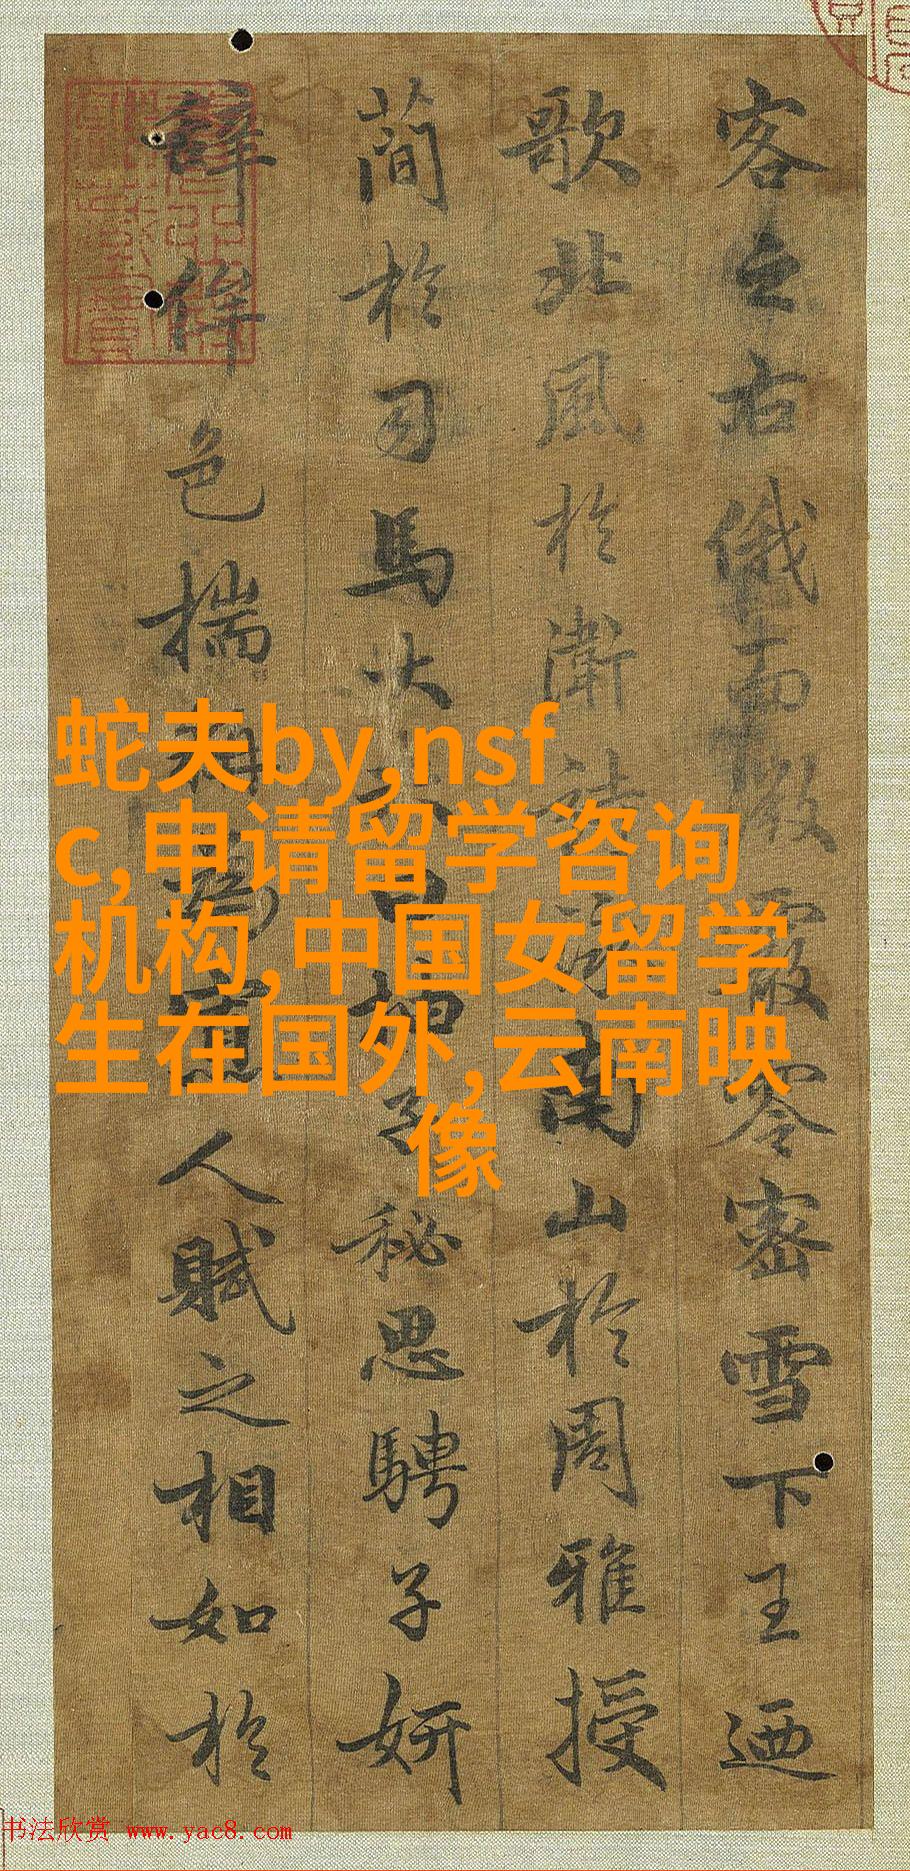 客之右俄而微霰零密雪下王迺
歌北風於衛詩詠南山於周雅授
簡於司馬大夫曰抽子秘思騁子妍
辭侔色揣稱為寡人賦之相如於
蛇夫by,nsf
c,申请留学咨询
机构,中国女留学
生在国外,云南映
像
书法欣赏 www.yac8.com